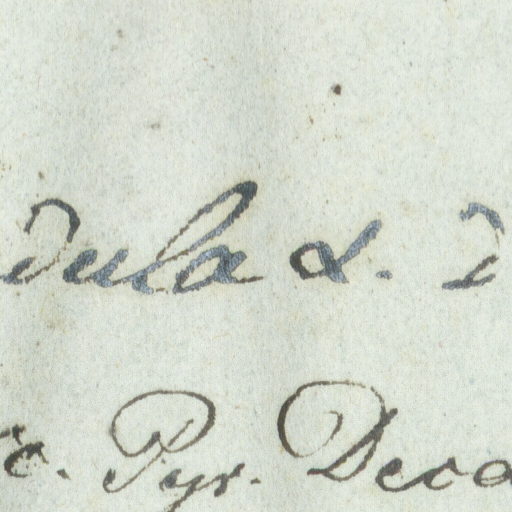 dula α. D
c. Pyr. Deca